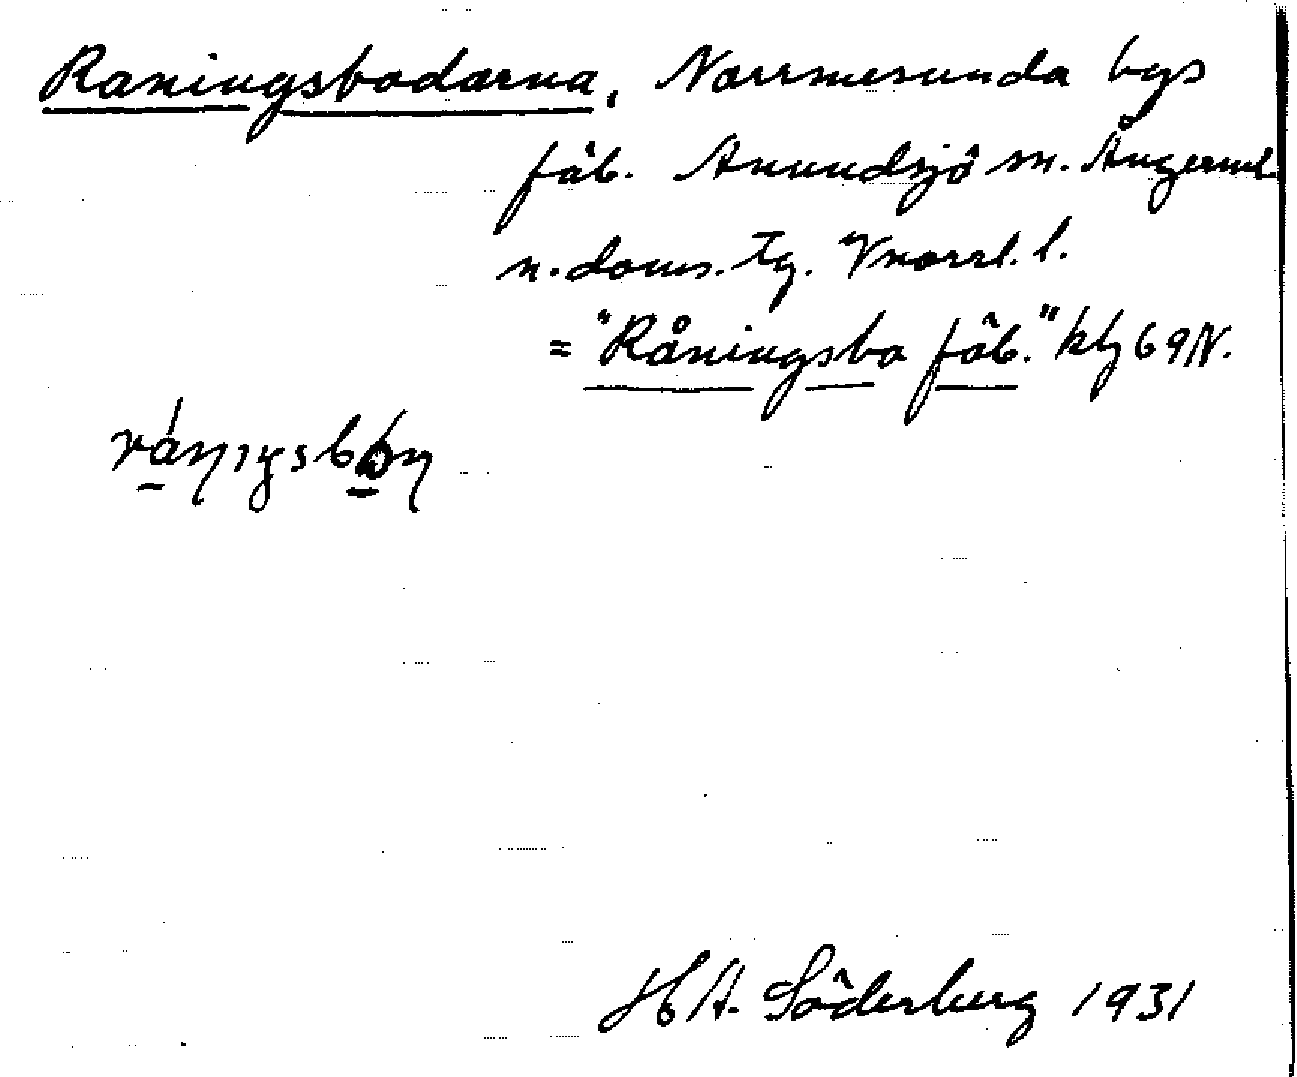 Raningsbodarna, Norrmesunda bys
fäb. Anundsjö sn. Ångerml.
n. doms. tg. Vnorrl. l.
= "Råningsbo fäb." ktbl 69 N.
H A. Söderberg 1931